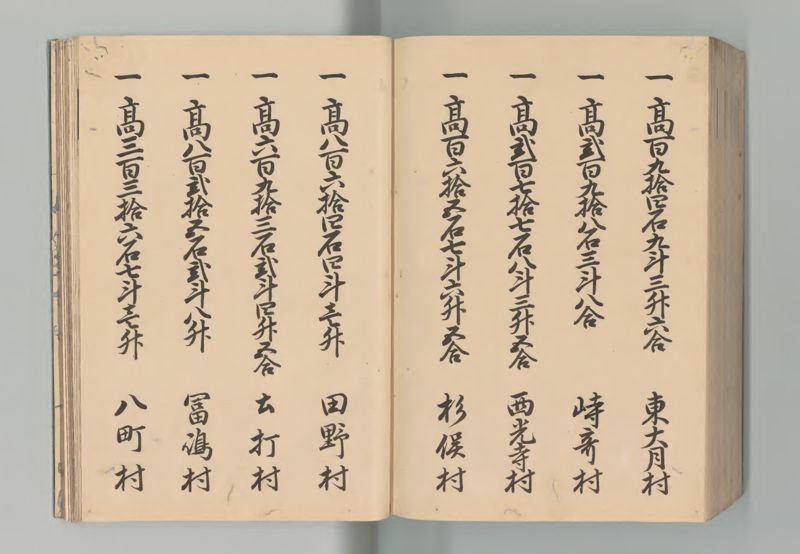 一 高百九拾四石九斗三升六合 東大月村
一 高弐百九拾八石三斗八合 峙斉村
一 高弐百七拾七石八斗三升五合 西光寺村
一 高百六拾五石七斗六升五合 杉俣村
一 高八百六拾四石四斗壱升 田野村
一 高六百九拾三石弐斗四升五合 土打村
一 高八百弐拾五石弐斗八升 冨嶋村
一 高三百三拾六石七斗壱升 八町村